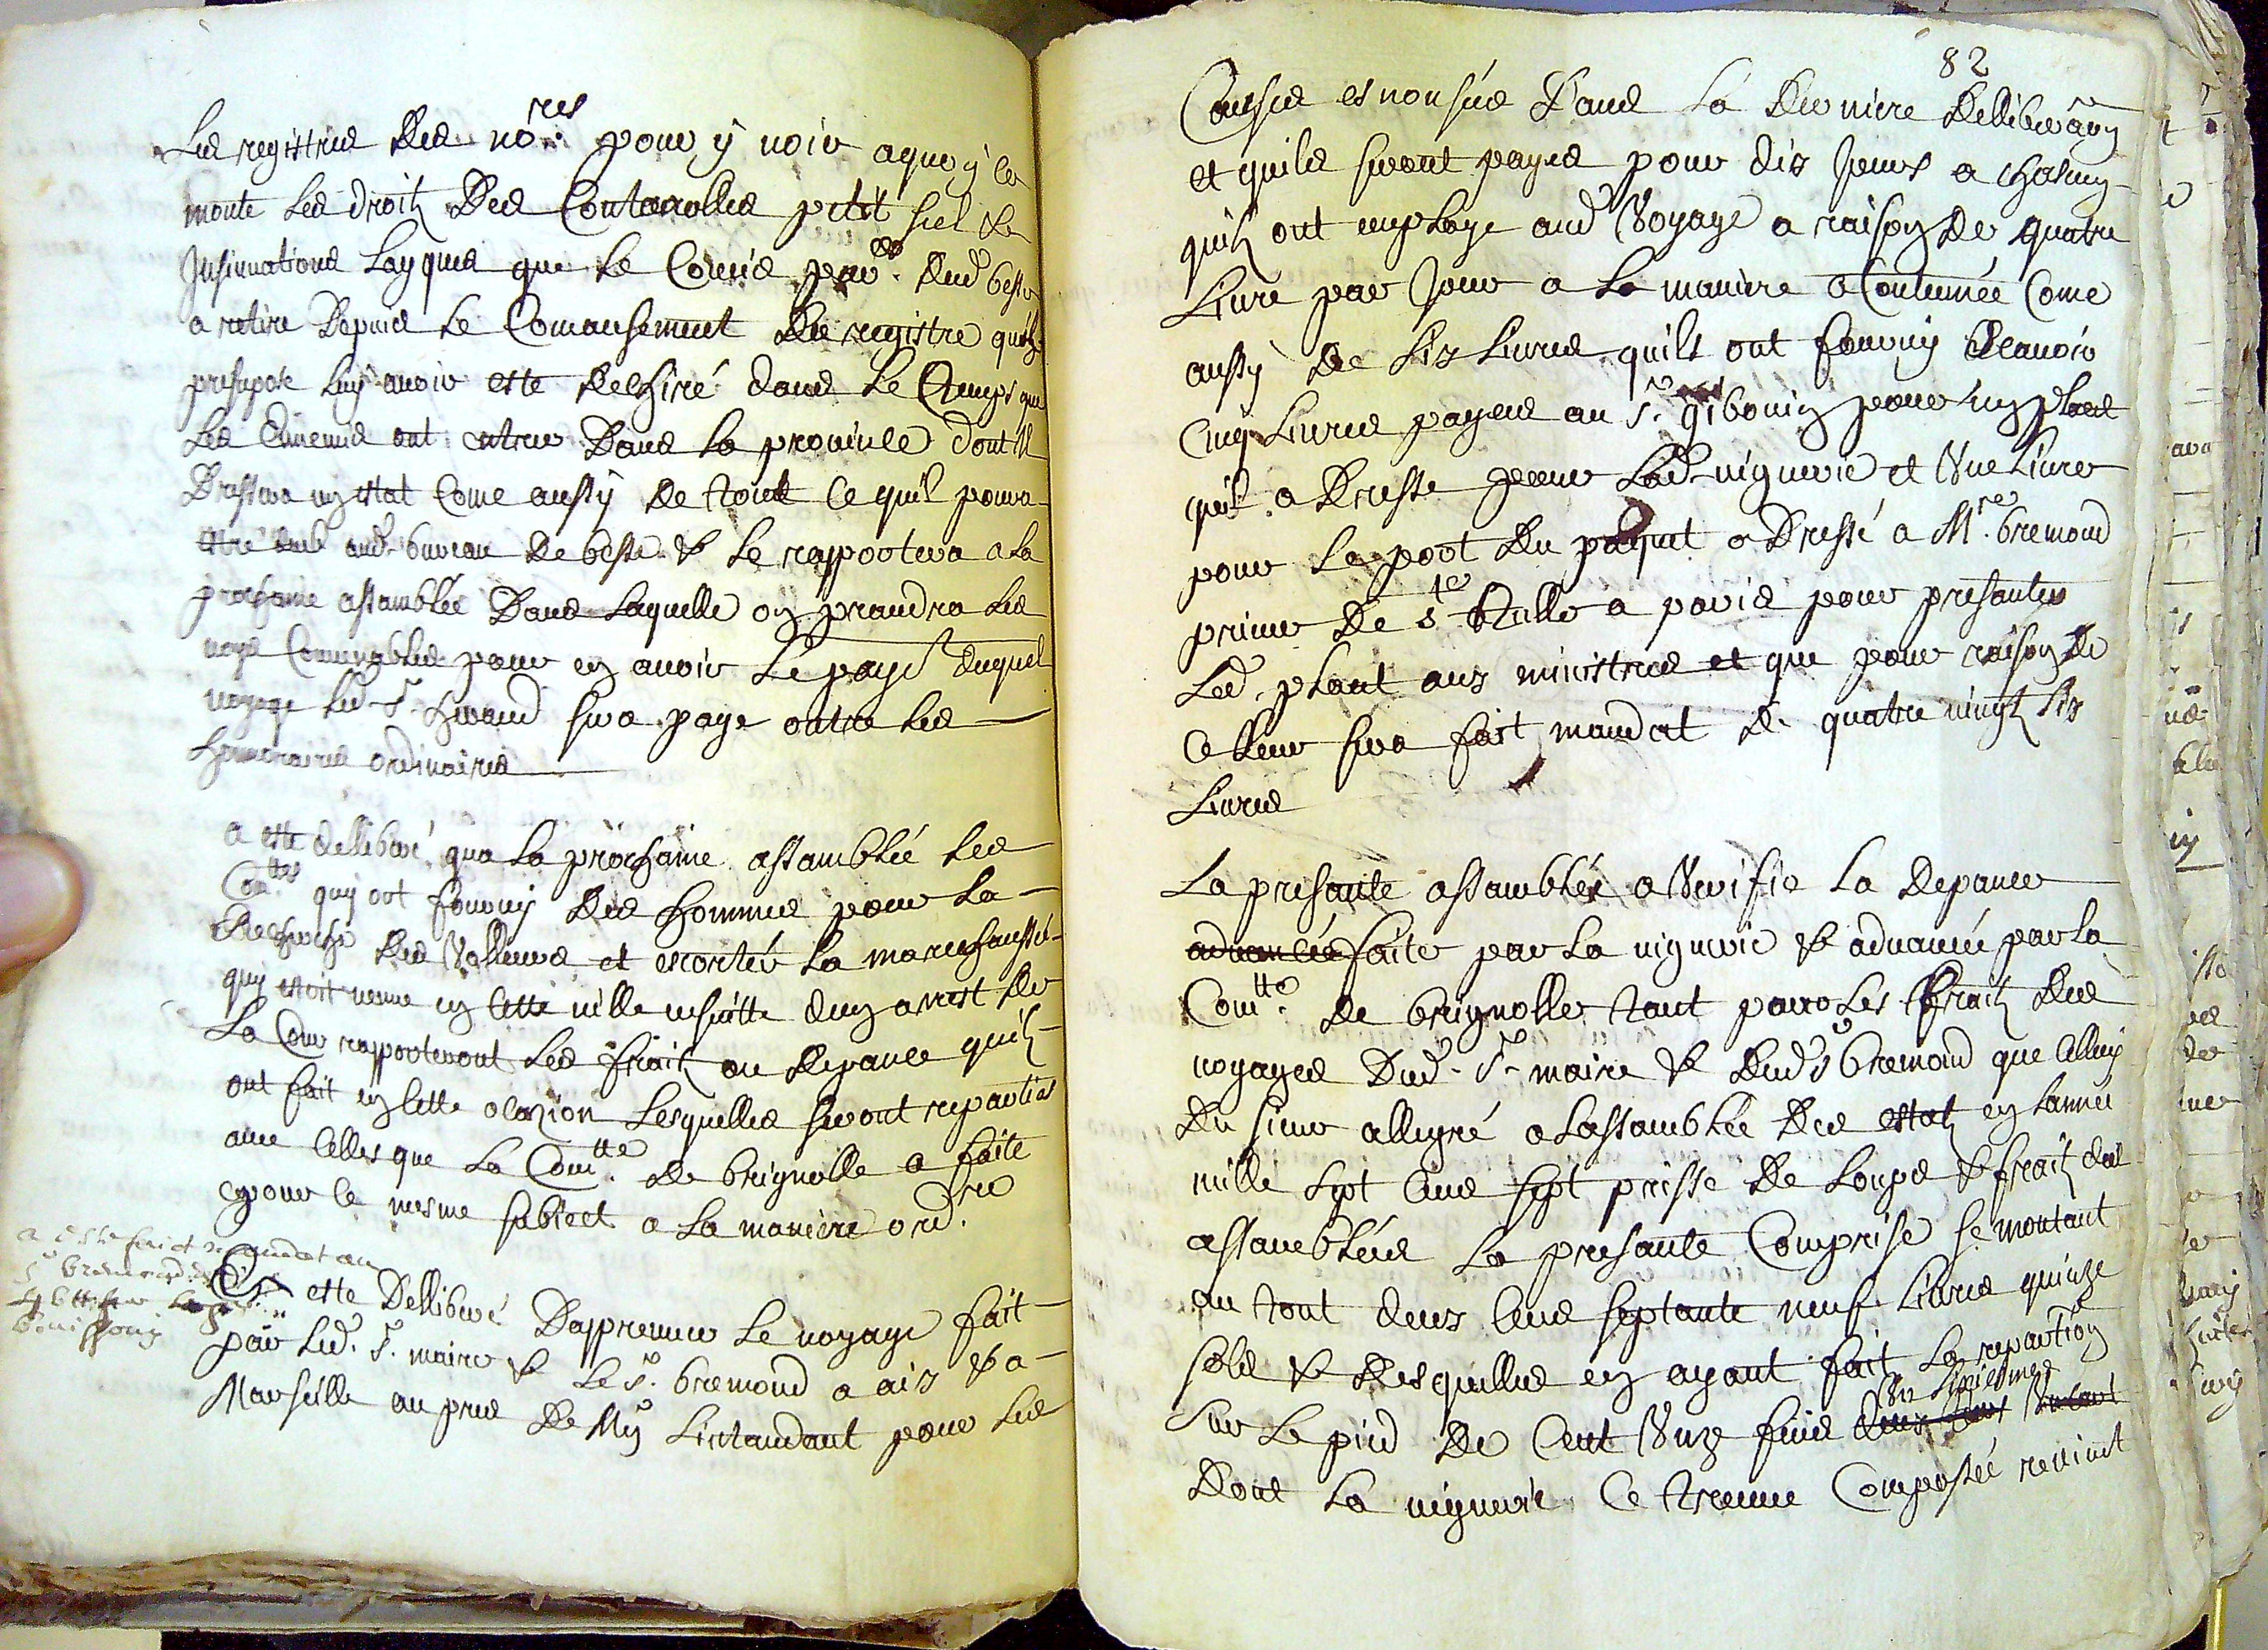 Les registres des no.res pour y voir a quoy ce
monte les droitz des Contarrolles petit seel &
Insinuations Layques que le Comis dud besse
a retire depuis le Comansement du registre quil
presupose luy avoir esté deschiré dans le temps que
les Ennemis ont entrer dans la province dont il
Dressera un estat Come aussy de tout ce quil pourra
aud. bureau de besse & le rapportera a la
prochaine assamblée dans laquelle on prandra les
voyes Convenables pour en avoir le paye duquel
voyage led. Sr. sera paye outre les
honnoraires ordinaires
a esté delliberé qua la prochaine assamblée les
Com.ttes quy ont fourny des hommes pour la
Recherche des Volleurs et escorter la marechaussée
quy estoit venue en cette ville ensuitte dun arrest de
la Cour rapporteront les fraitz ou depance quilz
ont fait en cette ocazion lesquelles seront reparties
avec celles que la Com.tte de brignolle a faite
pour le mesme subiect a la maniere ord.re
a esté faict mandat au
Sr bremond
Est esté Delliberé Dappreuver le voyage fait
par led. Sr. maire & le Sr. bremond a aix & a
Marseille au pres de Mgr Lintandant pour les
82
Causes enonsées dans la derniere Delliberaõn
et quils seront payes pour dix jours a chascun
quilz ont employe aud Voyage a raison de quatre
Livre par jour a la maniere acoutumée Come
aussy de six livres quils ont fourny scavoir
Cinq Livres payees au Sr. giboin pour un placet
quil a dresse pour lad. viguerie et Une Livre
pour le port du paquet adressé a M.re bremond
prieur de Ste tulle a paris pour presanter
led. placet aux ministres et que pour raison de
ce leur sera fait mandat de quatre vingtz six
Livres
La presante assamblée a Verifie la depance
advancée faite par la viguerie & advancée par la
Com.tte de brignolle tant pour les fraitz des
voyages dud. Sr. maire & dud Sr bremond que celluy
du sieur allegré a lassamblée des estatz en lannée
mille sept cens sept prisse de loups & fraitz des
assamblées la presante Comprise se montant
au tout deux cens septante neuf livres quinze
sols & desquelles en ayant fait la repartion
sur le pied de Cent Unze feus Un sixiesme
dont la viguerie ce treuve Composée revient